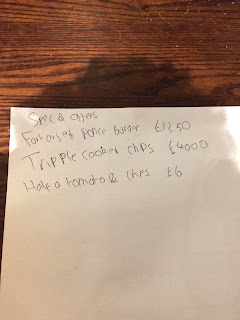 Special offers
police burger £1250
Tripple cooked chips £4000
Half a tomato & chips £6